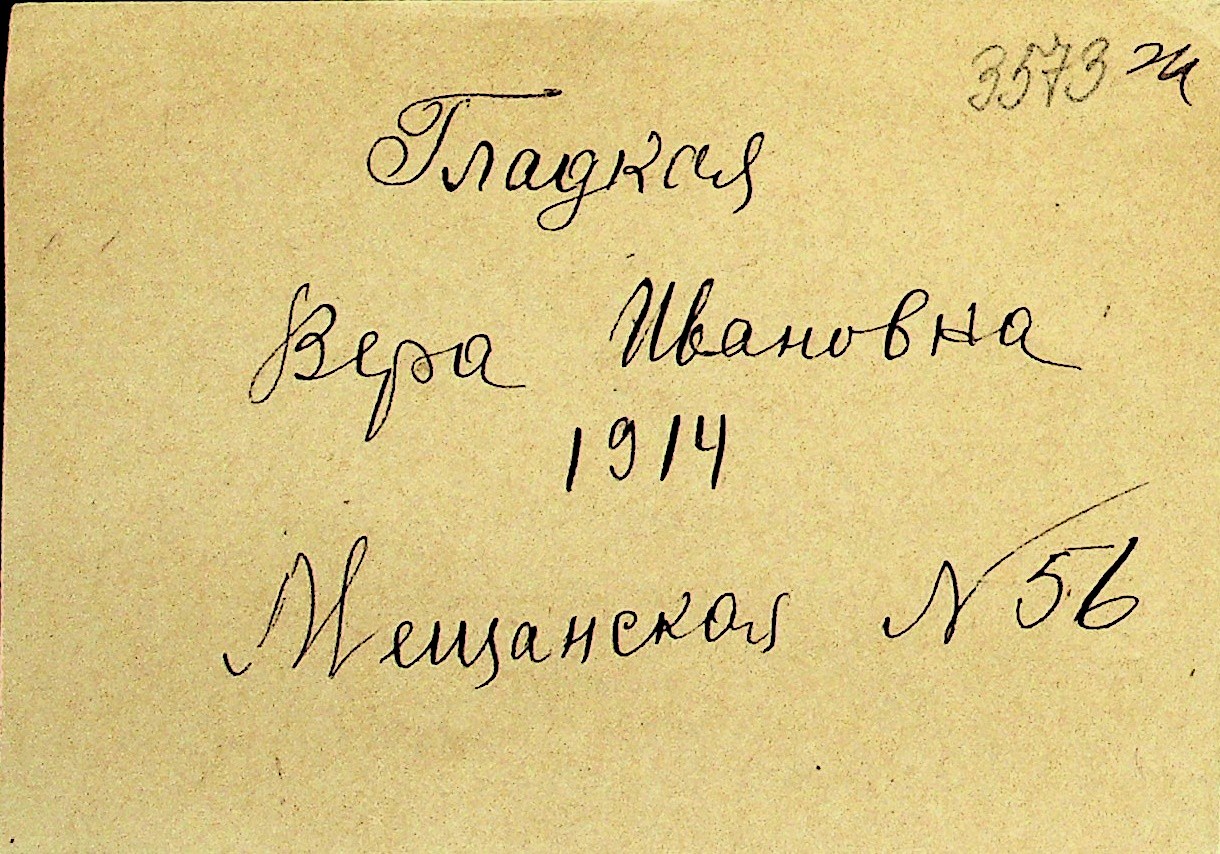 3573
Гладкая
Вера Ивановна
1914
Мещанская N 56